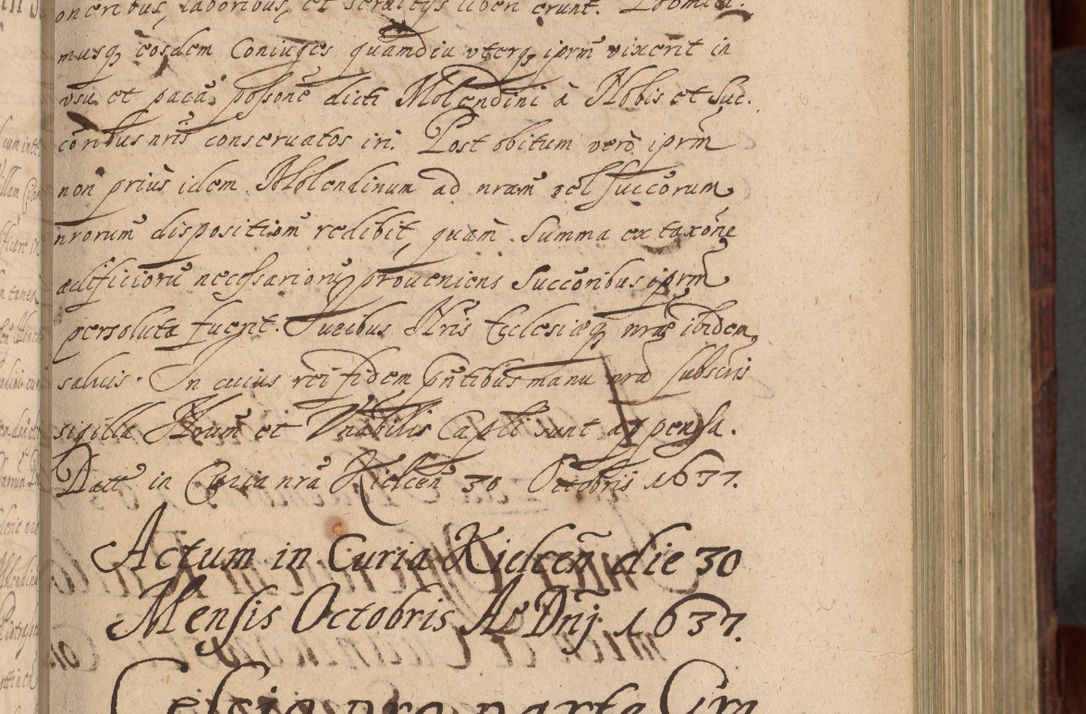 oneribus, laboribus, et servitijs liberi erunt.
musq, eosdem Coniuges quamdiu uterq, iprm̃ vixerit in
usu et paca possone dicti Molendini à Nobis et Suc-
coribus nris conservatos iri. Post obitum verò iprm̃
non priùs idem Molendinum ad nram vel succorum
nrorum dispositiom redibit, quàm Summa ex taxone
aedificioru necessarioru, proveniens Succoribus iprm̃
persoluta fuerit. Juribus Nris Ecclesiaeq, nrae ibidem
salvis. In cuius rei fidem pntibus manu nra subscris
sigilla Nrum et Vnabilis Capli sunt appensa.
Datt in Curia nra Kielcen 30 Octobris 1637.
Actum in Curia Kielceñ die 30
Mensis Octobris A Dñj 1637.
Celsia pro parte Gra